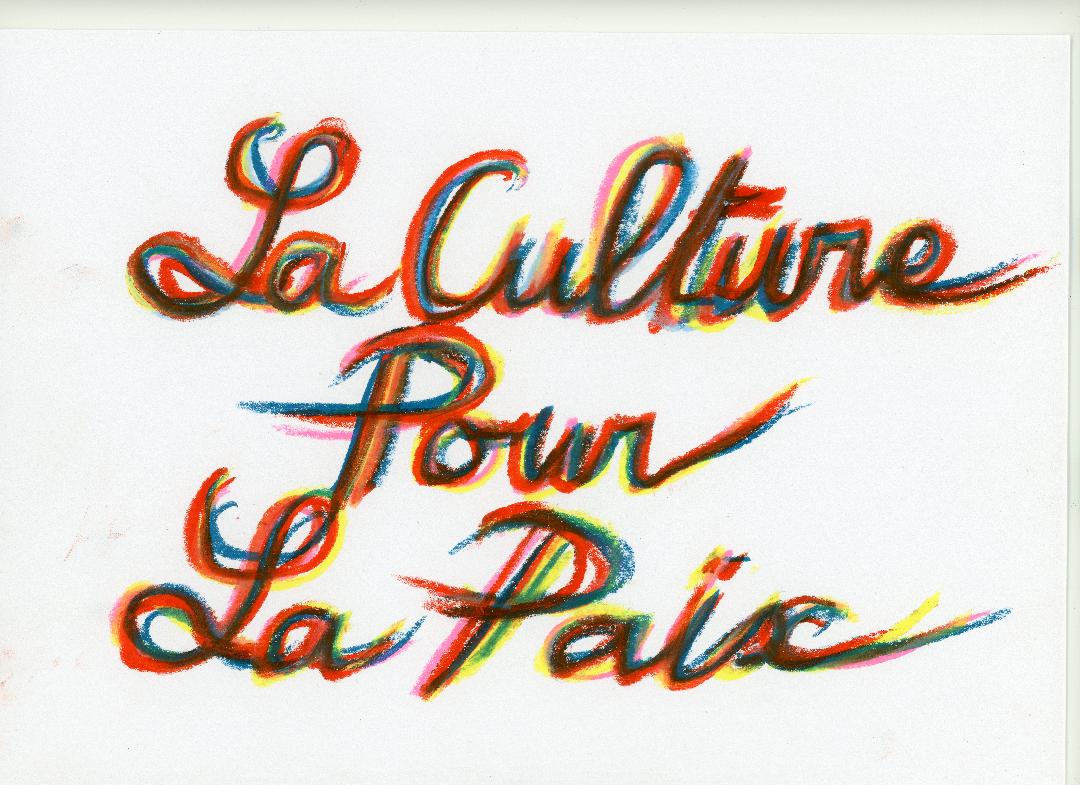 La Culture
Pour
La Paix